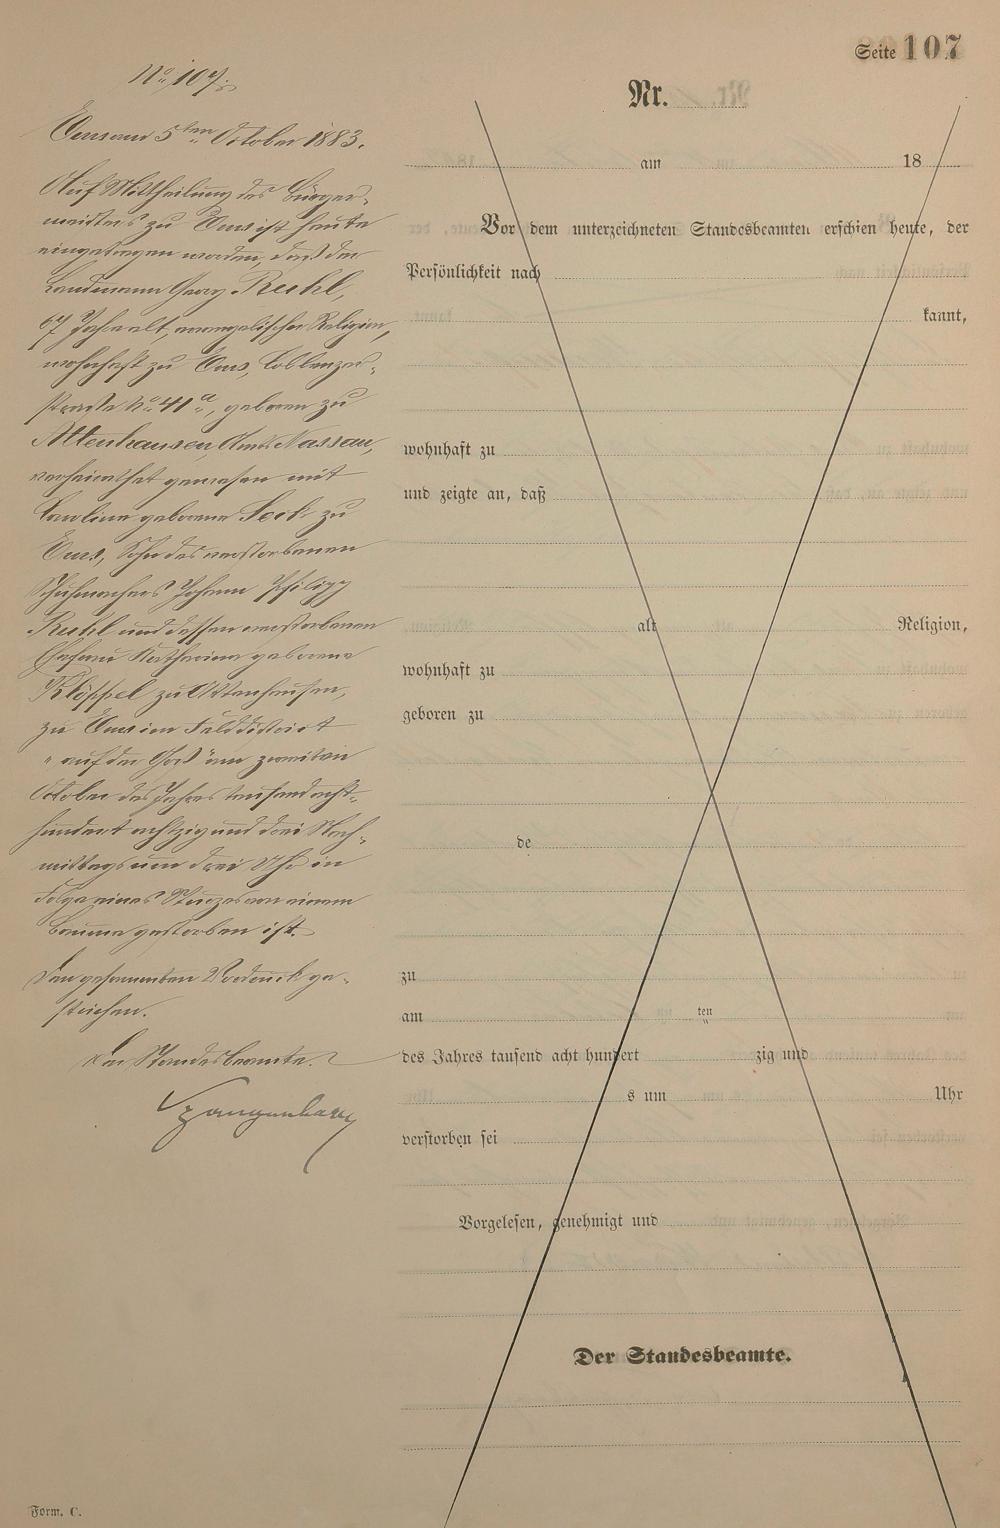 Seite 107
No. 107.
Nr.
Ems am 5ten October 1883.
am 18
Auf Mittheilung des Bürger-
meisters zu Ems ist heute
eingetragen worden, daß der
Landmann Georg Ruhl,
67 Jahre alt, evangelischer Religion,
wohnhaft zu Ems, Coblenzer-
strasse No. 41a, geboren zu
Attenhausen, Amts Nassau,
verheirathet gewesen mit
Caroline geborene Seck zu
Ems, Sohn des verstorbenen
Schuhmachers Johann Philipp
Ruhl und dessen verstorbenen
Ehefrau Katharina geborene
Klöppel zu Attenhausen,
zu Ems im Felddistrict
"auf der " am zweiten
October des Jahres tausend acht-
hundert achtzig und drei Nach-
mittags um drei Uhr in
Folge eines Sturzes von einem
Baume gestorben ist.
Den gesammten Vordruck ge-
strichen.
Der Standesbeamte.
Spangenberg
Vor dem unterzeichneten Standesbeamten erschien heute, der
Persönlichkeit nach
kannt,
wohnhaft zu
und zeigte an, daß
alt Religion,
wohnhaft zu
geboren zu
de
zu
am ten
des Jahres tausend acht hundert zig und
s um Uhr
verstorben sei
Vorgelesen, genehmigt und
Der Standesbeamte.
Form. C.